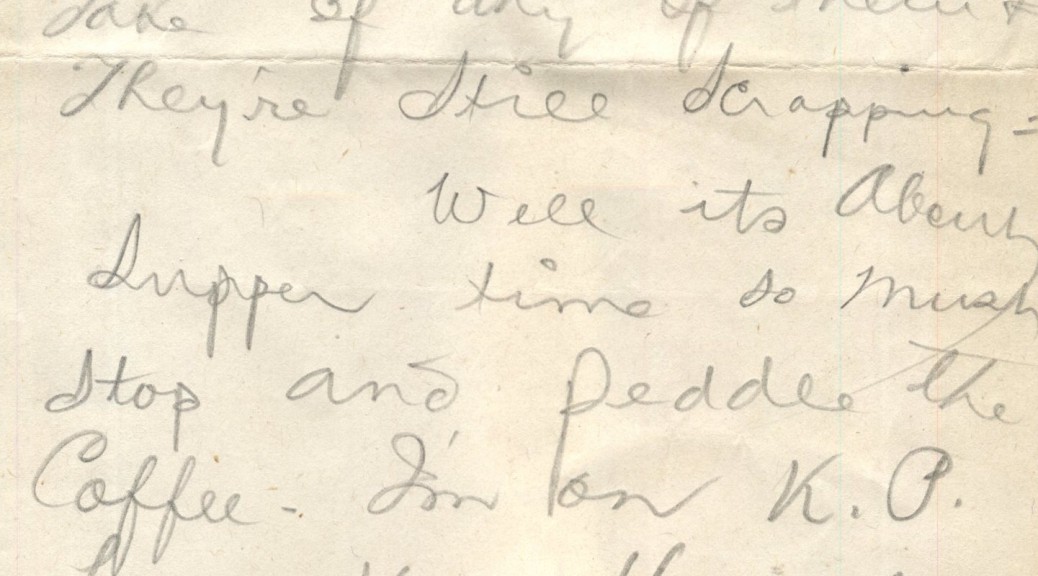 take of any of them &
They're Still Scrapping =
Well its About
Supper time so Must
Stop and Peddle the
Coffee - I'm on K.P.